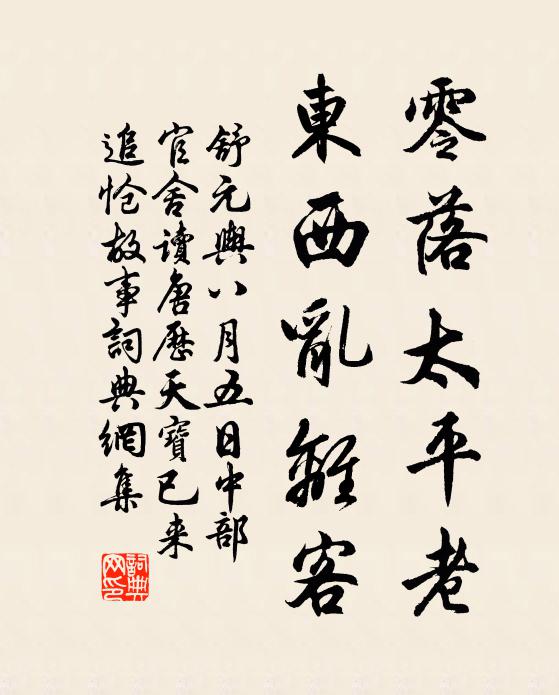 零落太平老
東西亂離客
舒元輿八月五日中部
官舍讀唐歷天寶已来
追愴故事詞典網集
詞典網印